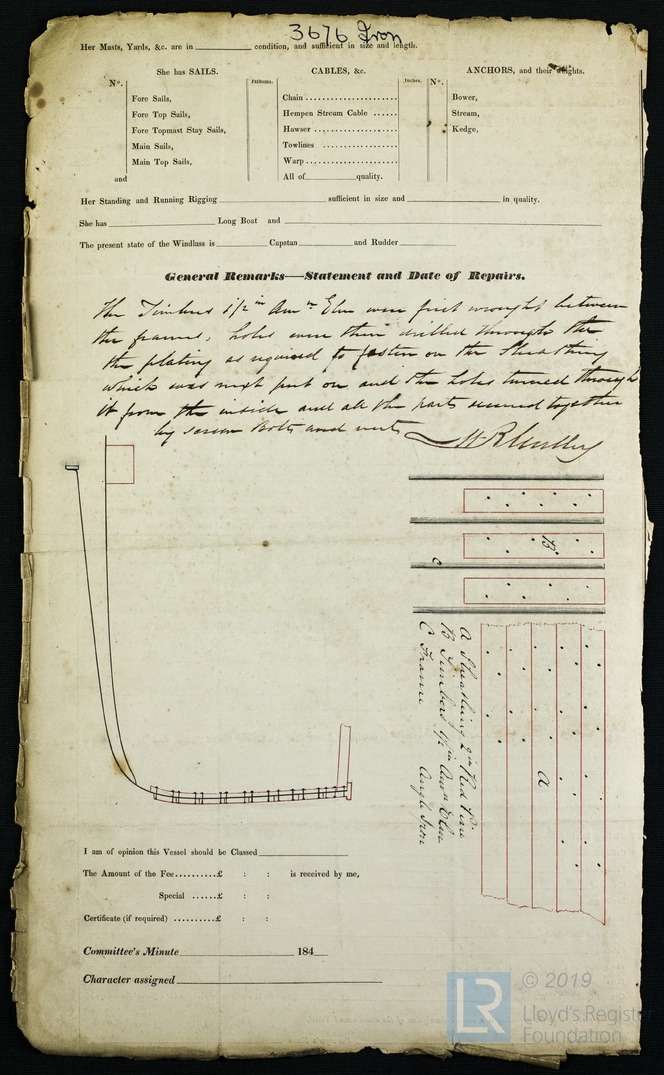 3676 Iron
Her Masts, Yards, &c. are in condition, and sufficient in size and length.
She has SAILS.
CABLES, &c.
ANCHORS, and their weights.
N°.
Fathoms.
Inches.
N°.
Fore Sails,
Fore Top Sails,
Fore Topmast Stay Sails,
Main Sails,
Main Top Sails,
and
Chain
Hempen Stream Cable
Hawser
Towlines
Warp
All of quality.
Bower,
Stream,
Kedge,
Her Standing and Running Rigging sufficient in size and in quality.
She has Long Boat and
The present state of the Windlass is Capstan and Rudder
General Remarks—Statement and Date of Repairs.
The Timbers 1/2 in Amn Elm were first wrought between
the frames, holes were then drilled through the
the plating as required to fasten on the Sheathing
which was next put on and the holes turned through
it from the inside and all the parts secured together
by screw Bolts and nuts
B
C
A Sheathing 2 in Red Pine
B Timbers 1/2 in Amn Elm
C Frame Angle Iron
A
I am of opinion this Vessel should be Classed
The Amount of the Fee..........£ : : is received by me,
Special ......£ : :
Certificate (if required) ..........£ : :
Committee's Minute 184
Character assigned
LR
© 2019
Lloyd's Register
Foundation